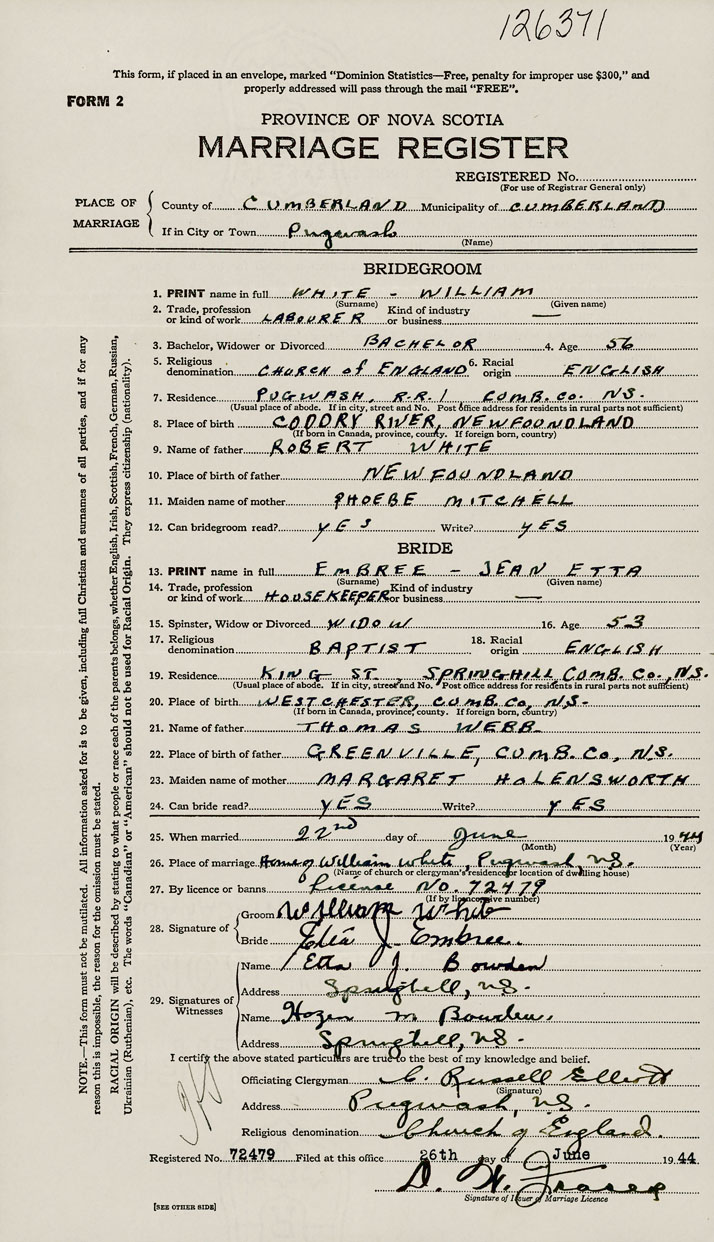 126371
This form, if placed in an envelope, marked "Dominion Statistics—Free, penalty for improper use $300," and
properly addressed will pass through the mail "FREE".
FORM 2
PROVINCE OF NOVA SCOTIA
MARRIAGE REGISTER
REGISTERED No.
(For use of Registrar General only)
PLACE OF MARRIAGE
County of CUMBERLAND Municipality of CUMBERLAND
If in City or Town Pugwash
(Name)
BRIDEGROOM
1. PRINT name in full WHITE - WILLIAM
(Surname) (Given name)
2. Trade, profession or kind of work LABOURER Kind of industry or business —
3. Bachelor, Widower or Divorced BACHELOR 4. Age 56
5. Religious denomination CHURCH of ENGLAND 6. Racial origin ENGLISH
7. Residence PUGWASH, R.R. 1 CUMB. CO. NS.
(Usual place of abode. If in city, street and No. Post office address for residents in rural parts not sufficient)
8. Place of birth CODDRY RIVER, NEWFOUNDLAND
(If born in Canada, province, county. If foreign born, country)
9. Name of father ROBERT WHITE
10. Place of birth of father NEWFOUNDLAND
11. Maiden name of mother PHOEBE MITCHELL
12. Can bridegroom read? YES Write? YES
BRIDE
13. PRINT name in full EMBREE - JEAN ETTA
(Surname) (Given name)
14. Trade, profession or kind of work HOUSEKEEPER Kind of industry or business —
15. Spinster, Widow or Divorced WIDOW 16. Age 53
17. Religious denomination BAPTIST 18. Racial origin ENGLISH
19. Residence KING ST. SPRINGHILL, CUMB. CO., NS.
(Usual place of abode. If in city, street and No. Post office address for residents in rural parts not sufficient)
20. Place of birth WESTCHESTER, CUMB. CO, NS.
(If born in Canada, province, county. If foreign born, country)
21. Name of father THOMAS WEBB.
22. Place of birth of father GREENVILLE, CUMB. CO, N.S.
23. Maiden name of mother MARGARET HOLENSWORTH
24. Can bride read? YES Write? YES
25. When married 22nd day of June 1944
(Month) (Year)
26. Place of marriage Home of William White, Pugwash, NS.
(Name of church or clergyman's residence or location of dwelling house)
27. By licence or banns License No. 72479
(If by licence, give number)
28. Signature of
Groom William White
Bride J. Embree.
29. Signatures of Witnesses
Name Etta J. Bowden
Address Springhill, NS.
Name Hazen M Bowden.
Address Springhill, NS.
I certify the above stated particulars are true to the best of my knowledge and belief.
Officiating Clergyman C. Russell Elliott
(Signature)
Address Pugwash, NS.
Religious denomination Church of England.
Registered No. 72479 Filed at this office 26th day of June 1944
D. W. Fraser
Signature of Issuer of Marriage Licence
[SEE OTHER SIDE]
NOTE.—This form must not be mutilated. All information asked for is to be given, including full Christian and surnames of all parties, and if for any
reason this is impossible, the reason for the omission must be stated.
RACIAL ORIGIN will be described by stating to what people or race each of the parents belongs, whether English, Irish, Scottish, French, German, Russian,
Ukrainian (Ruthenian), etc. The words "Canadian" or "American" should not be used for Racial Origin. They express citizenship (nationality).